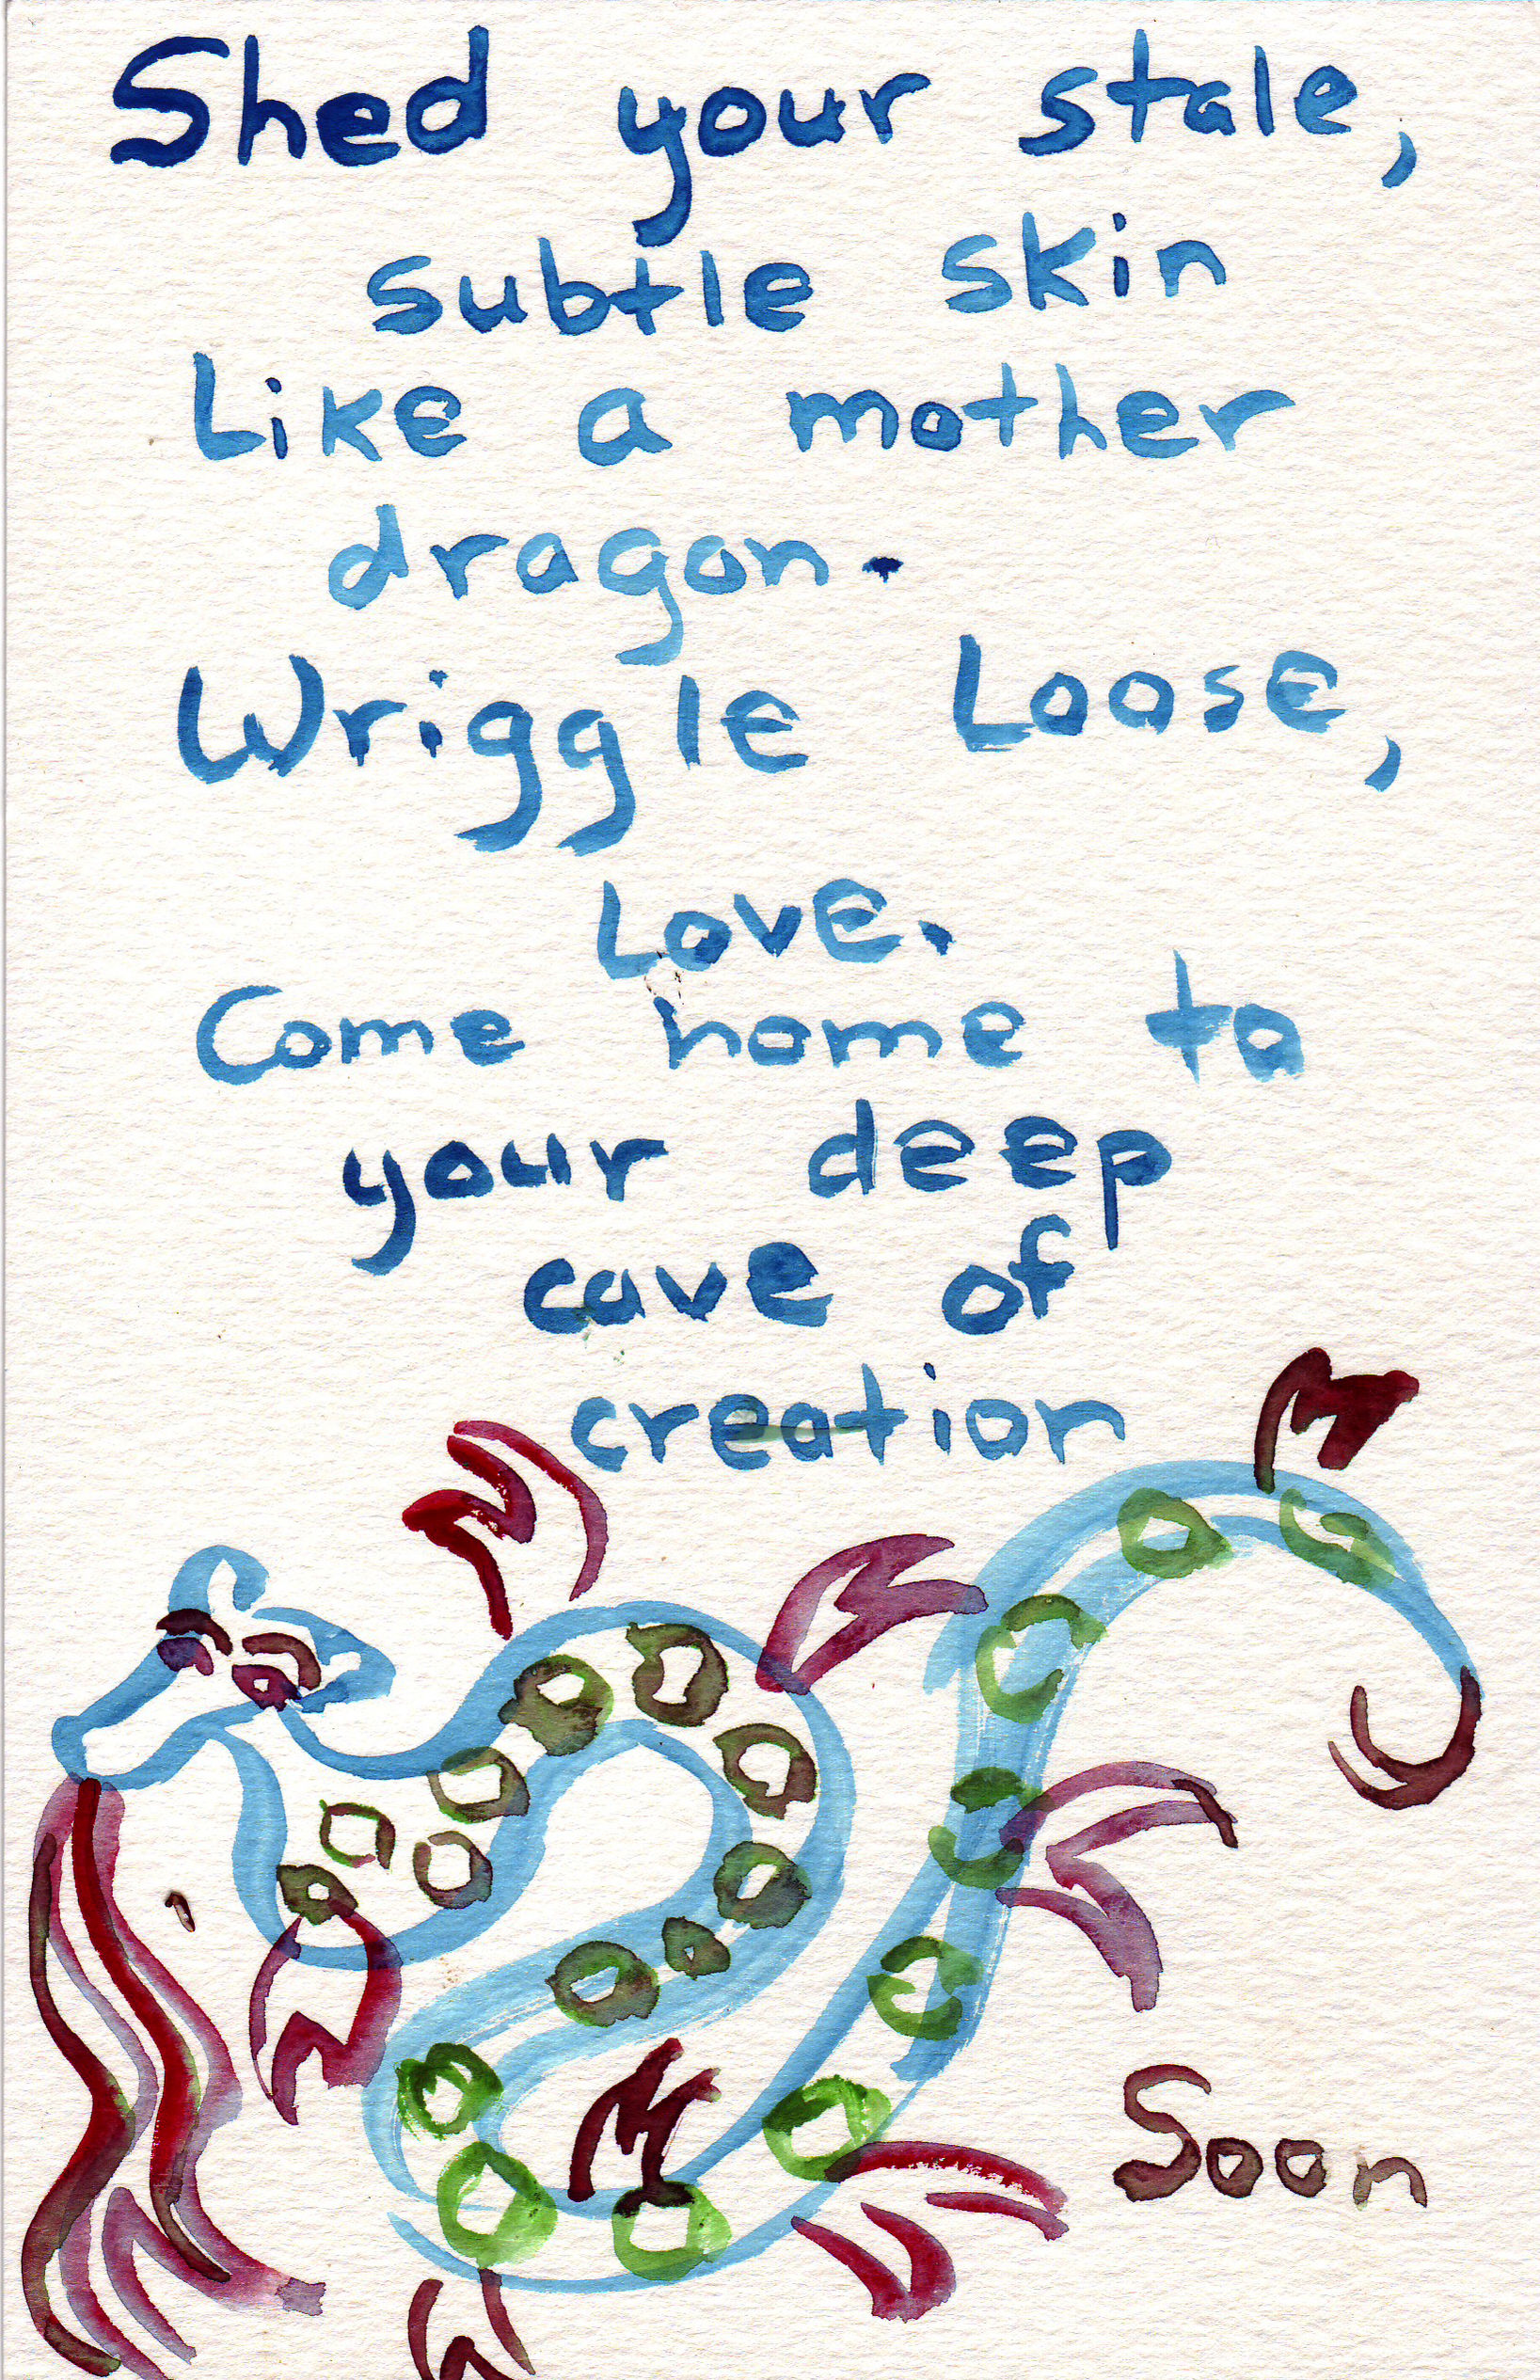 Shed your stale,
subtle skin
Like a mother
dragon.
Wriggle Loose,
Love.
Come home to
your deep
cave of
creation
Soon